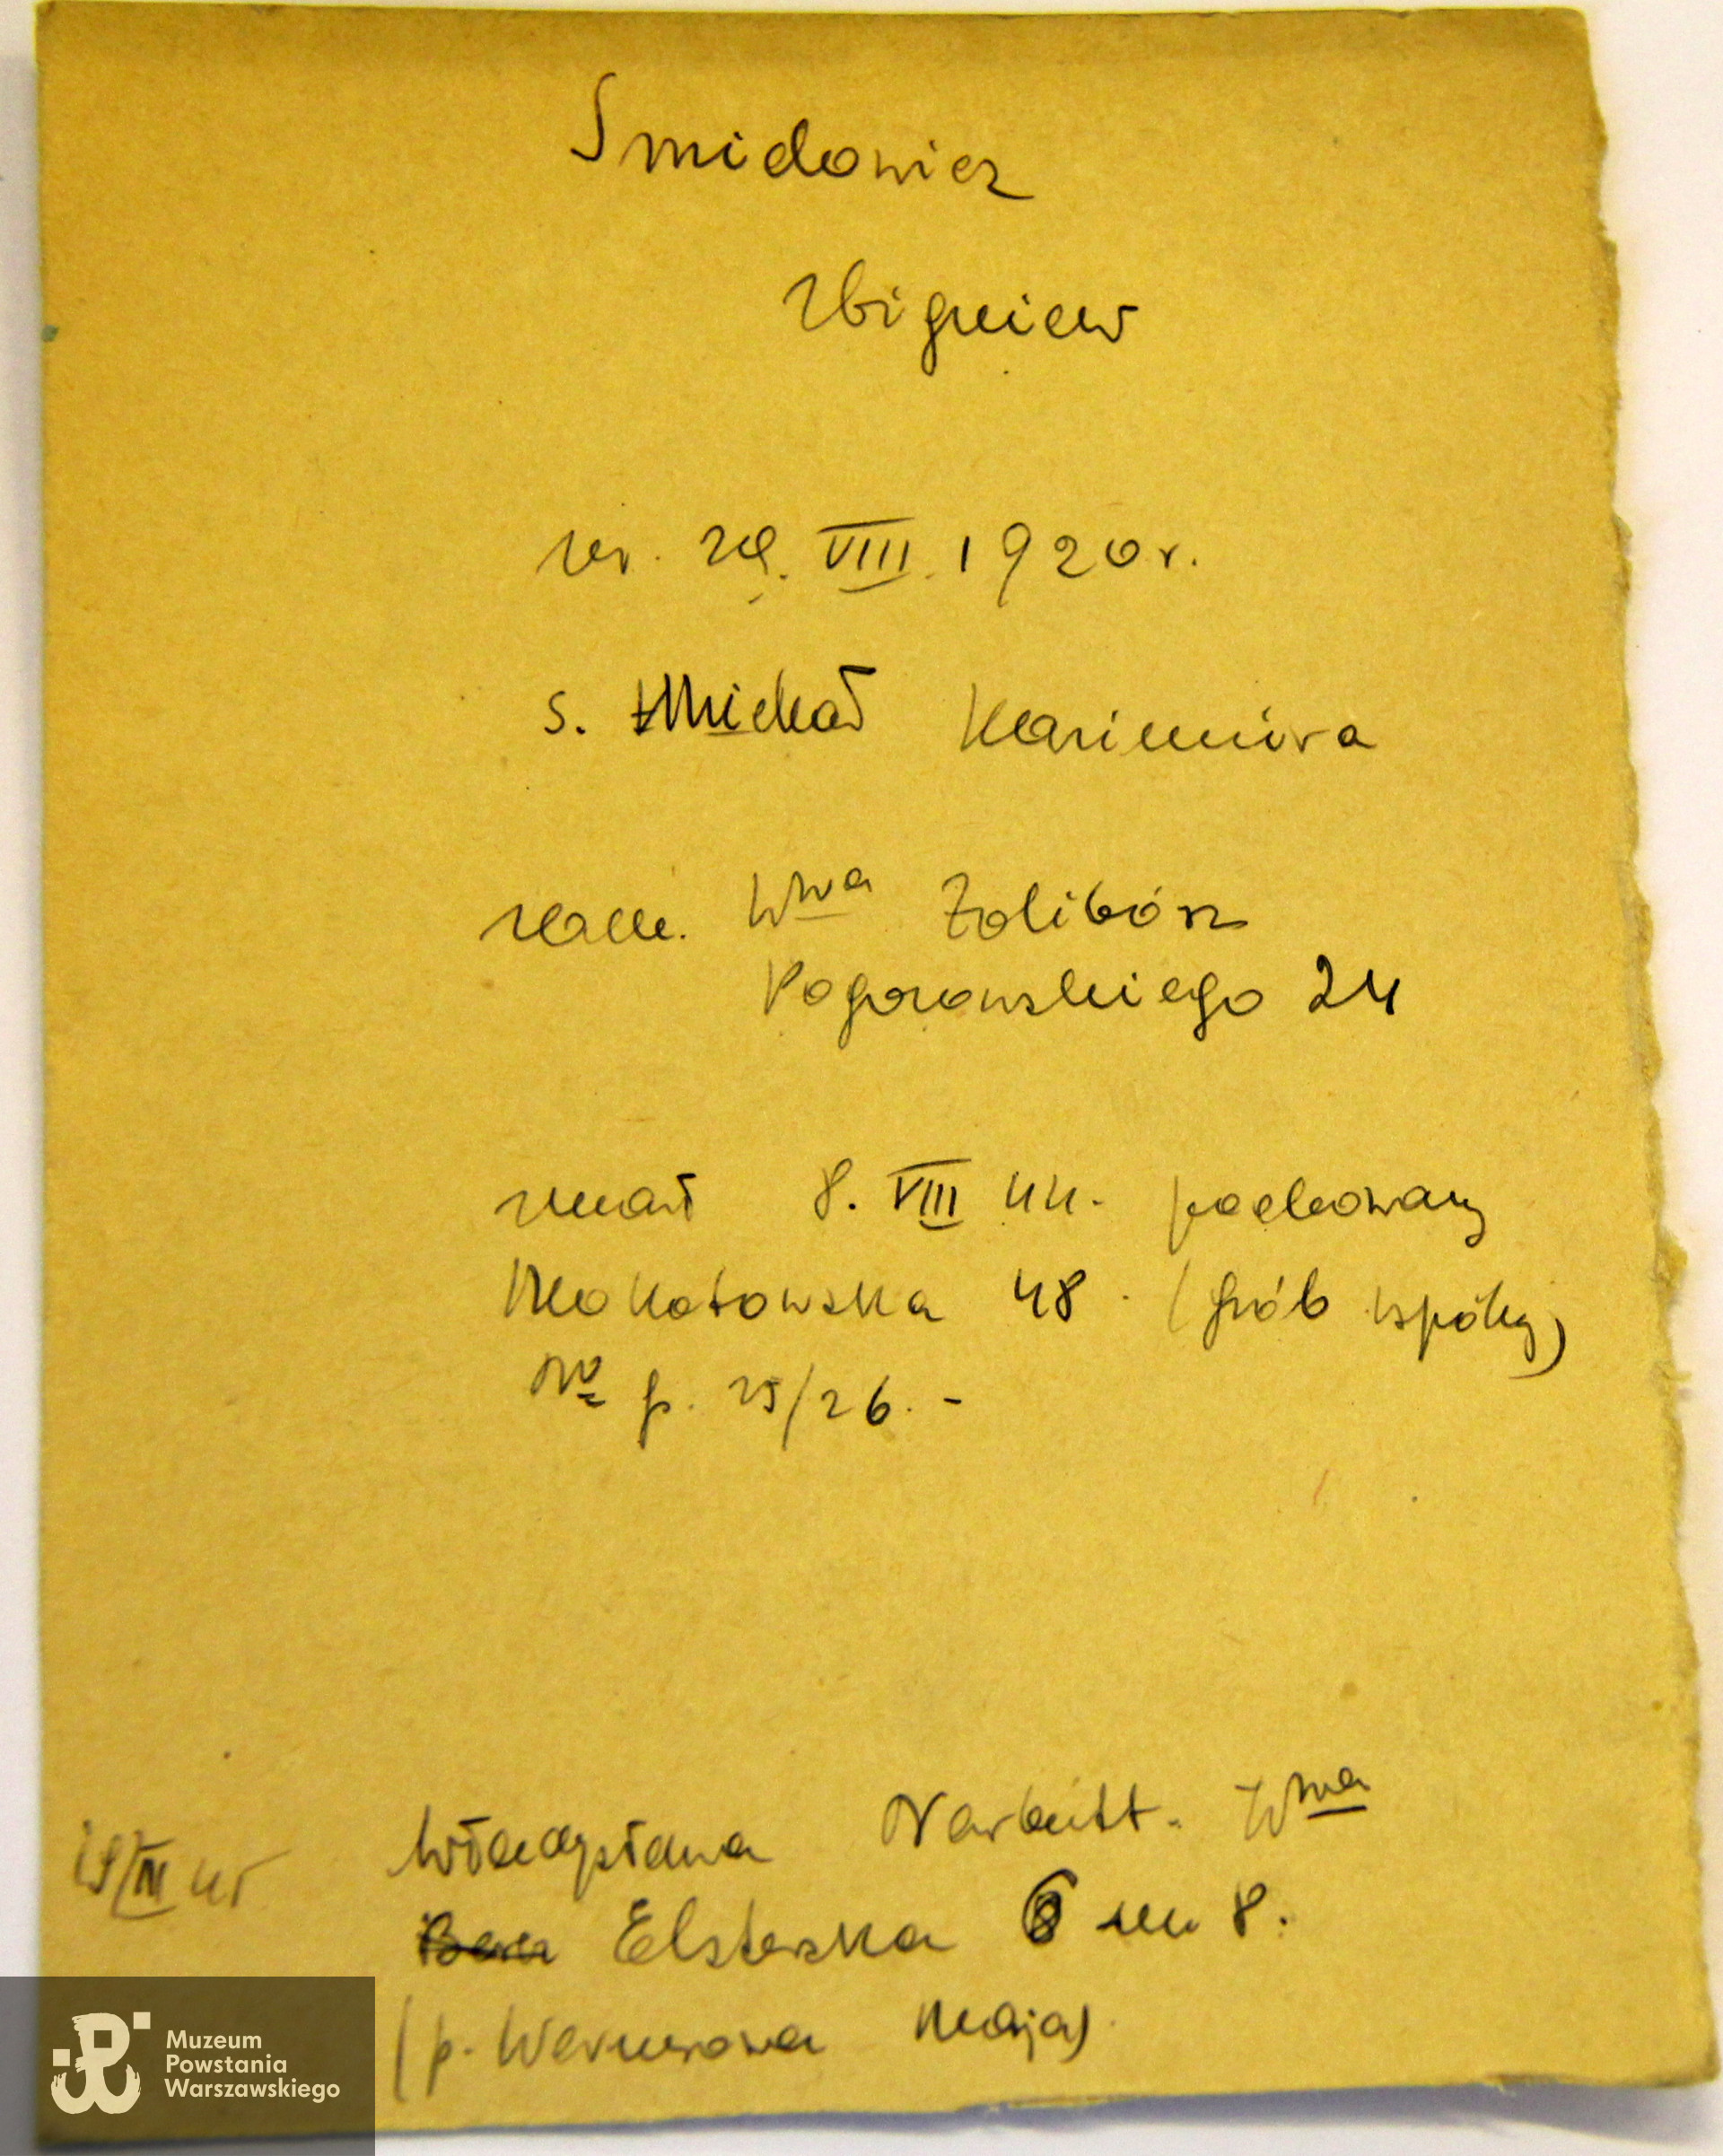 Smidowicz
Zbigniew
ur. 29. VIII. 1920 r.
s. Michał Kazimiera
zam. Wwa Żolibórz
Pogorowskiego 24
zmarł 8. VIII 44. pochowany
Mokotowska 48. (grób wspólny)
No p. 25/26. -
Władysława Narbutt. Wwa
Elsterska 6 m 8.
(p. Wernerowa Maja)
Muzeum
Powstania
Warszawskiego